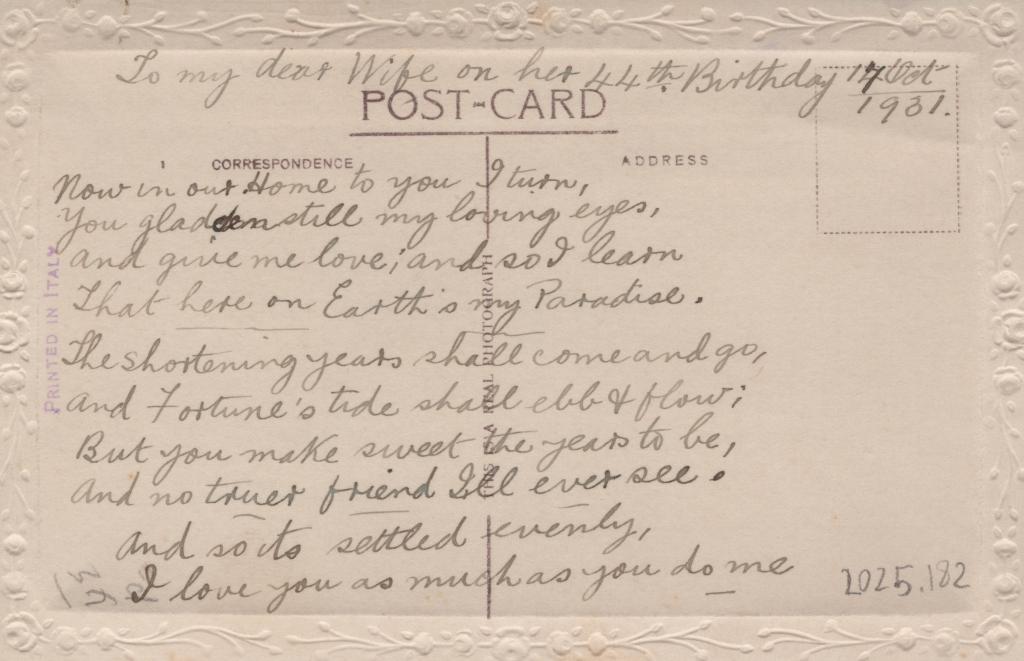 To my dear Wife on her 44th Birthday 17 Oct
1931.
POST-CARD
CORRESPONDENCE
ADDRESS
Now in our Home to you I turn,
You gladden still my loving eyes,
And give me love; and so I learn
That here on Earth's my Paradise.
The shortening years shall come and go,
And Fortune's tide shall ebb & flow;
But you make sweet the years to be,
And no truer friend I'll ever see.
And so its settled evenly,
I love you as much as you do me
PRINTED IN ITALY
THIS IS A REAL PHOTOGRAPH
2025.182